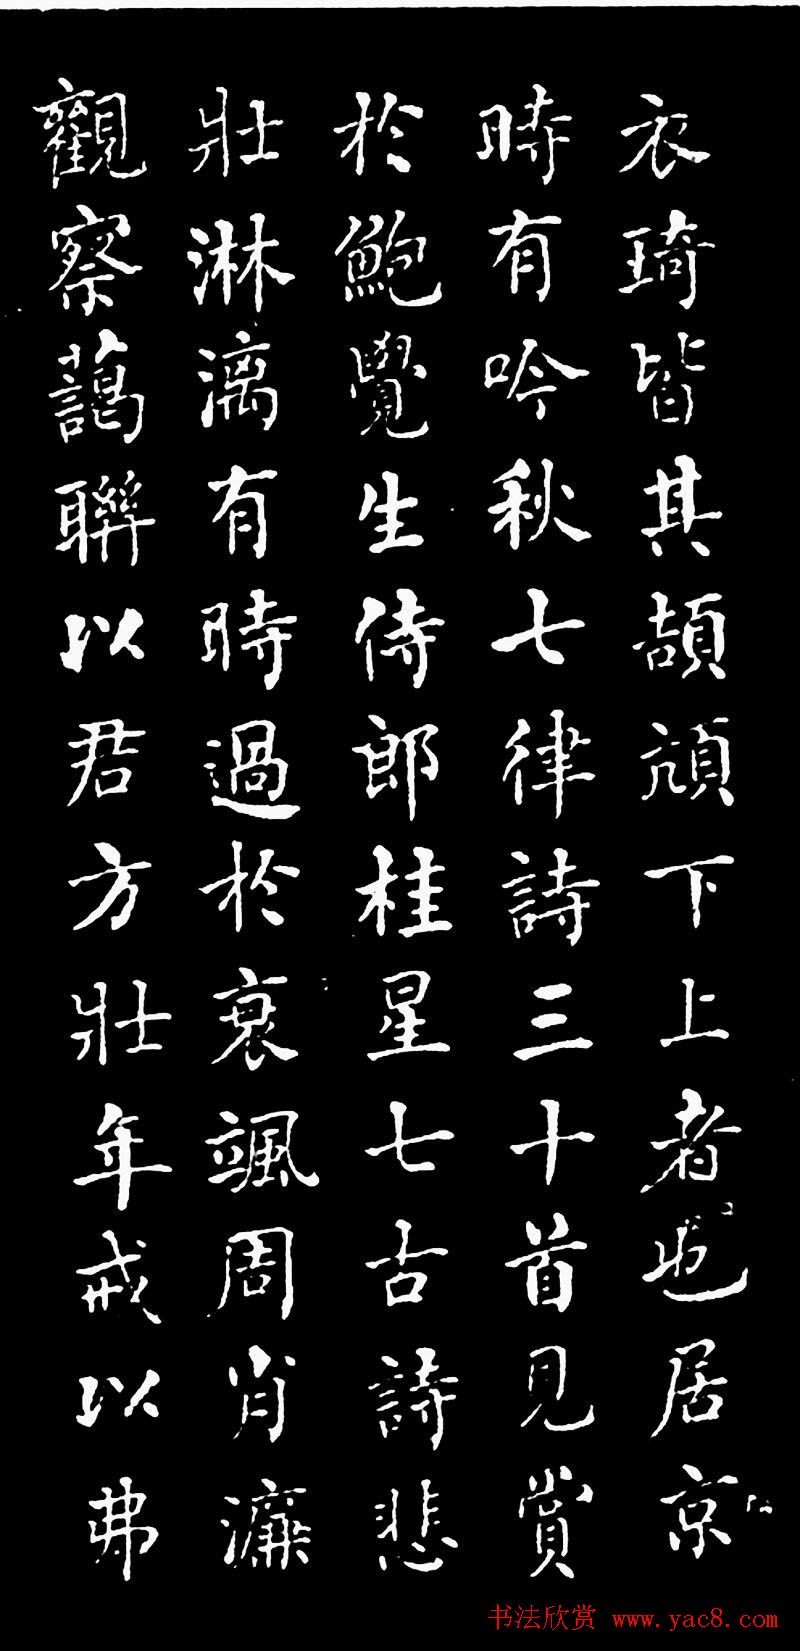 衣琦皆其頡頏下上者也居京
時有吟秋七律詩三十首見賞
於鮑覺生侍郎桂星七古詩悲
壯淋漓有時過於衰颯周肖濂
觀察藹聯以君方壯年戒以弗
书法欣赏 www.yac8.com